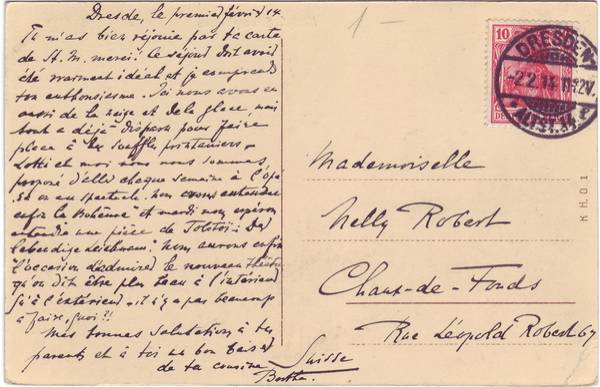 Dresde, le premier février 14.
Tu m'as bien réjouie par ta carte
de St. M. merci! le séjour doit avoir
été vraiment idéal et je comprends
ton enthousiasme. Ici nous avons eu
aussi de la neige et de la glace mais
tout a déjà disparu pour faire
place à des souffles printaniers.
Lotti et moi nous nous sommes
proposé d'aller chaque semaine à l'opé-
ra ou au spectacle. Nous avons entendu
enfin la "Bohème" et mardi nous espérons
entendre une pièce de Tolstoï: Der
lebendige Leichnam. Nous aurons enfin
l'occasion d'admirer le nouveau théâtre
qu'on dit être plus beau à l'intérieur
qu'à l'extérieur. il n'y a pas beaucoup
à faire, quoi?!
Mes bonnes salutations à tes
parents et à toi un bon baiser
de ta cousine
Berthe.
1-
10
DRESDEN
-2.2.14.11-12V.
* ALTST. 14
Mademoiselle
Nelly Robert
Chaux-de-Fonds
Rue Léopold Robert 67
Suisse
K H. D 1